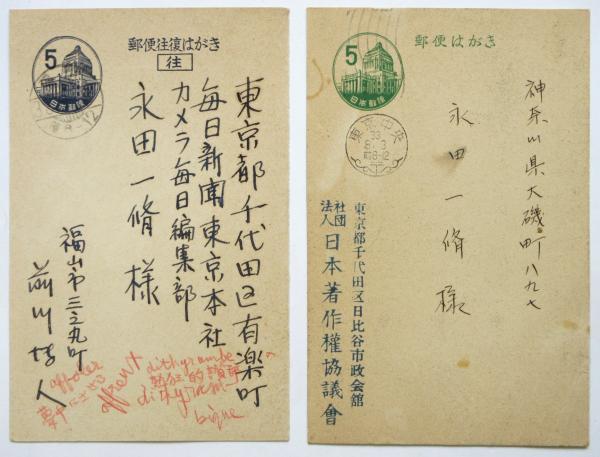 郵便往復はがき
往
5
日本郵便
東京都千代田区有楽町
毎日新聞東京本社
カメラ毎日編集部
永田一脩様
福山市三之丸町
前川
人
affoler
夢中にさせる
affront
dithyrambe
熱狂的讃歌の
dithyram
bique
郵便はがき
5
日本郵便
東京中央
33
8.3
前8-12
神奈川県大磯町八九七
永田一脩様
東京都千代田区日比谷市政会館
社団
法人
日本著作權協議會